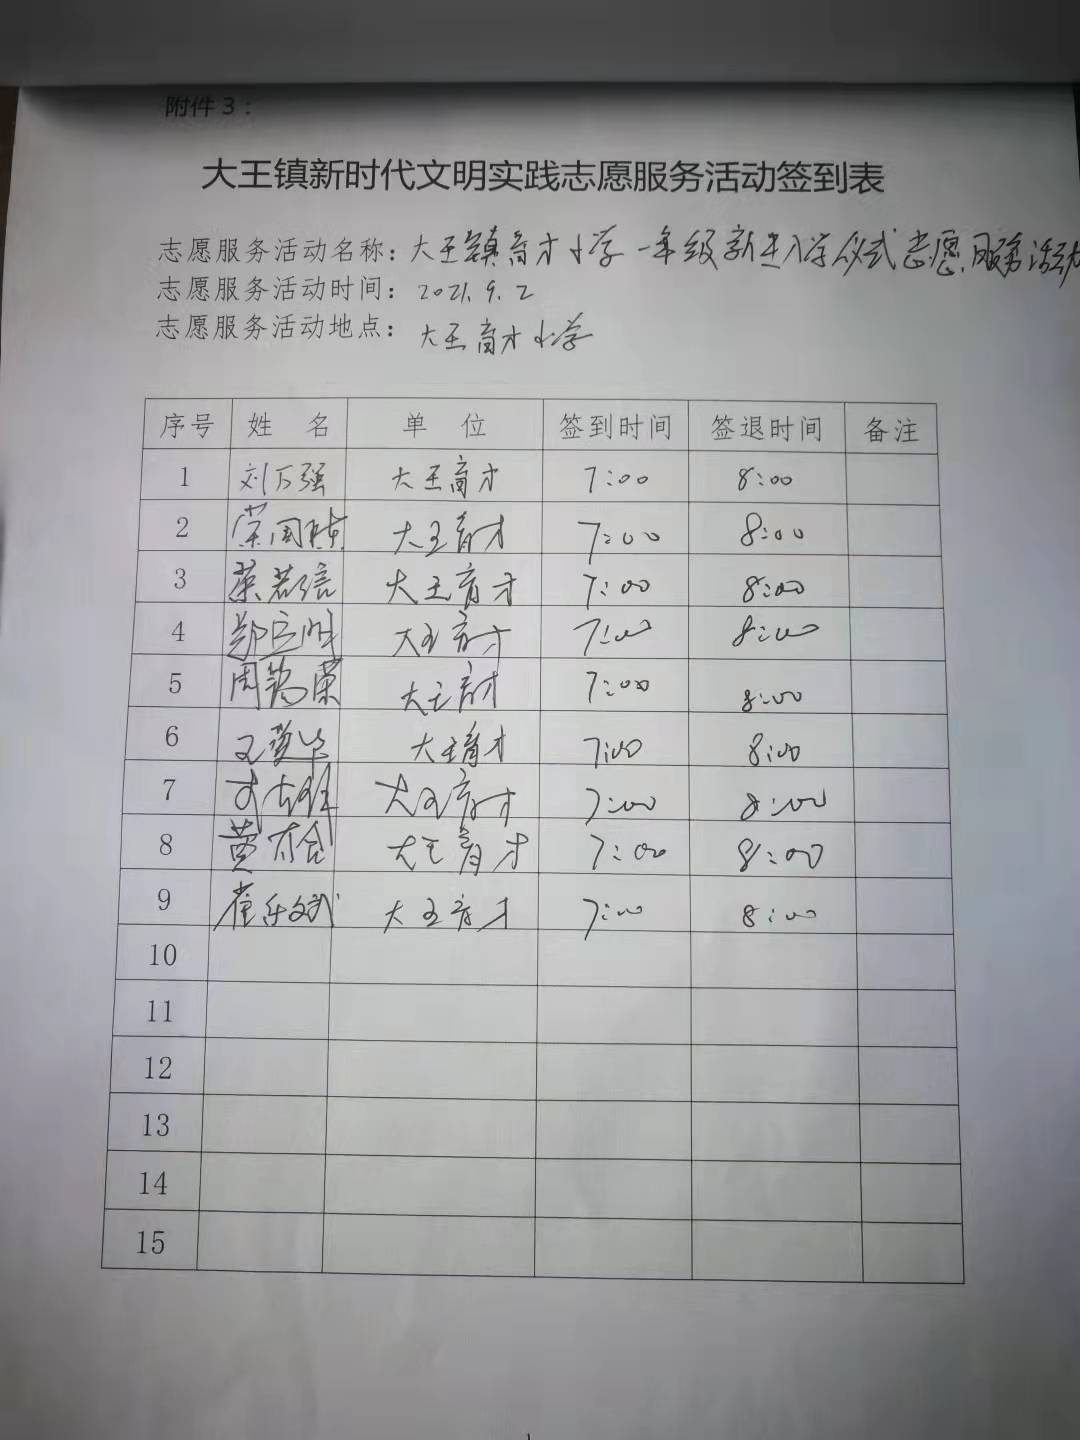 附件3：
大王镇新时代文明实践志愿服务活动签到表
志愿服务活动名称：大王镇育才小学一年级新生入学仪式志愿服务活动
志愿服务活动时间：2021.9.2
志愿服务活动地点：大王育才小学
序号 姓 名 单 位 签到时间 签退时间 备注
1 刘万强 大王育才 7:00 8:00
2 大王育才 7:00 8:00
3 大王育才 7:00 8:00
4 大王育才 7:00 8:00
5 大王育才 7:00 8:00
6 大王育才 7:00 8:00
7 大王育才 7:00 8:00
8 大王育才 7:00 8:00
9 大王育才 7:00 8:00
10
11
12
13
14
15